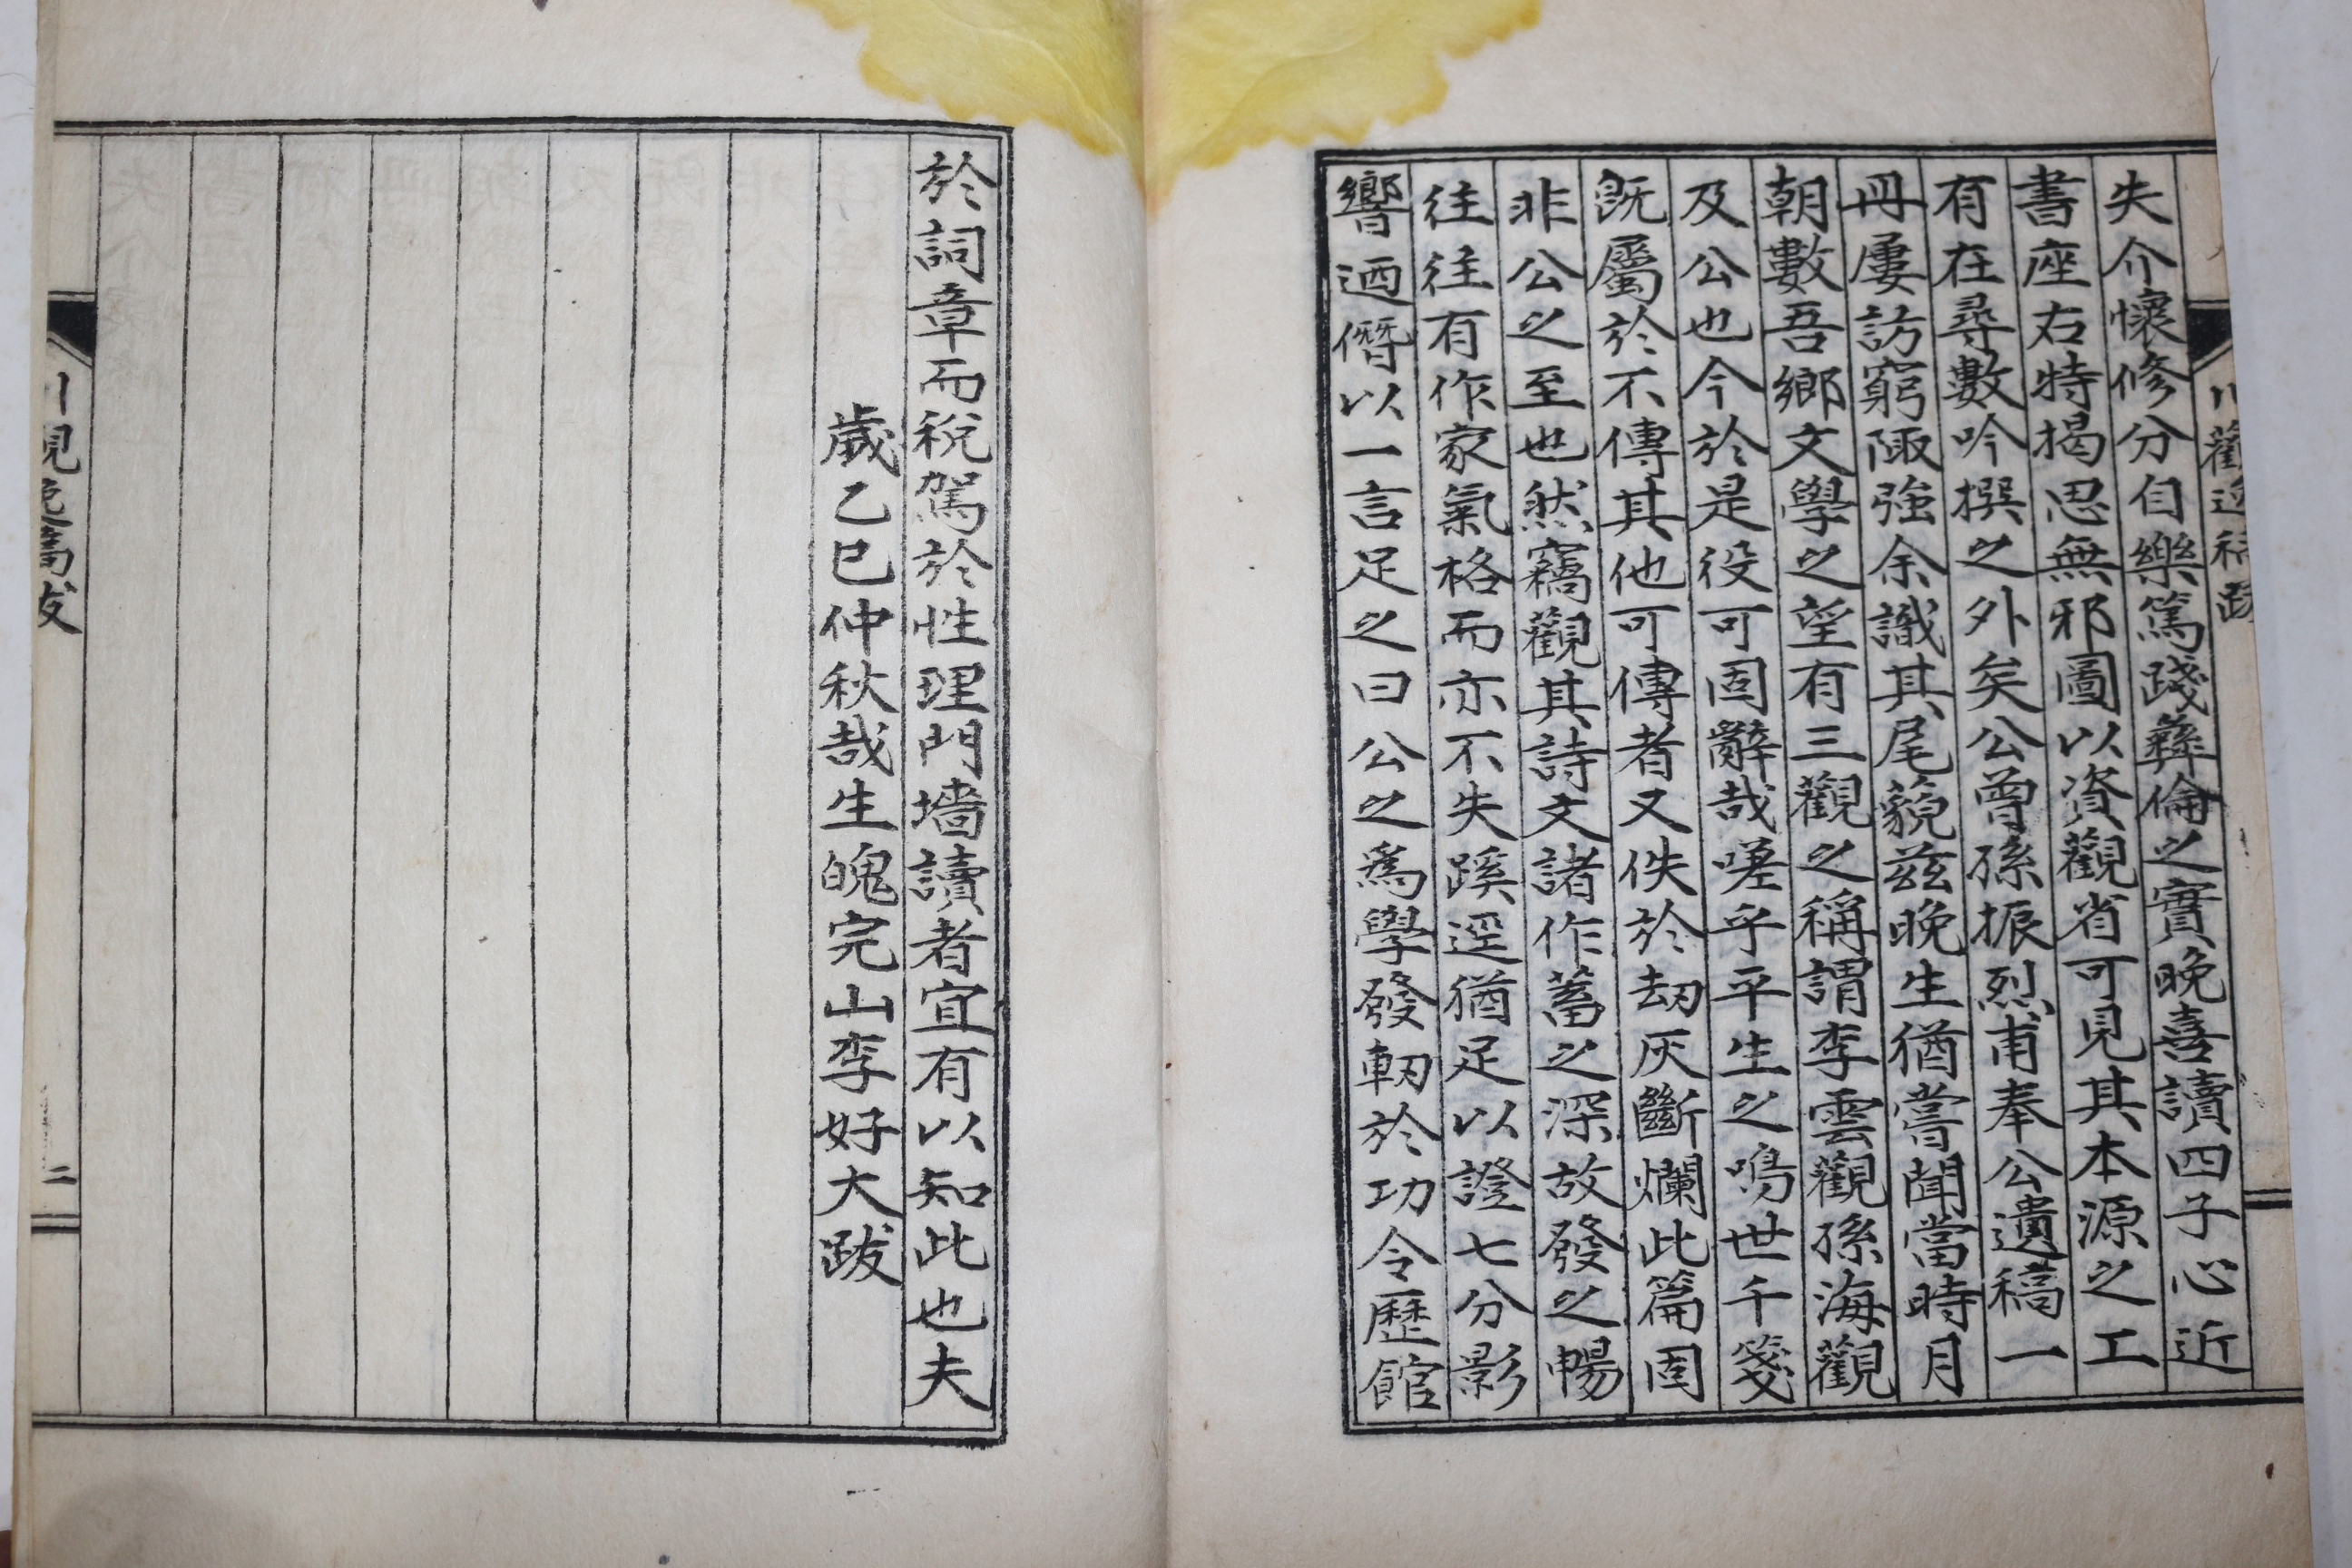 失介懷修分自樂篤踐彝倫之實晚喜讀四子心近
書座右特揭思無邪圖以資觀省可見其本源之工
有在尋數吟撰之外矣公曾孫振烈甫奉公遺稿一
冊屢訪窮陬強余識其尾藐玆晚生猶嘗聞當時月
朝數吾鄉文學之望有三觀之稱謂李雲觀孫海觀
及公也今於是役可固辭哉嗟乎平生之鳴世千箋
旣屬於不傳其他可傳者又佚於刧灰斷爛此篇固
非公之至也然竊觀其詩文諸作蓄之深故發之暢
往往有作家氣格而亦不失蹊逕猶足以證七分影
響迺僭以一言足之曰公之爲學發軔於功令歷館
於詞章而稅駕於性理門墻讀者宜有以知此也夫
歲乙巳仲秋哉生魄完山李好大跋
二